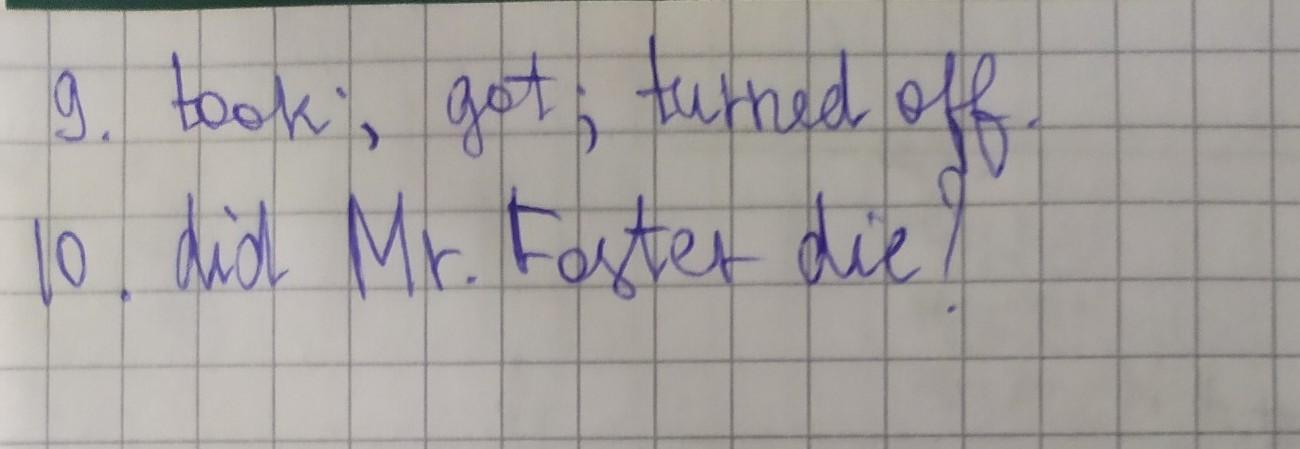 9. took; got; turned off.
10. did Mr. Foster die?